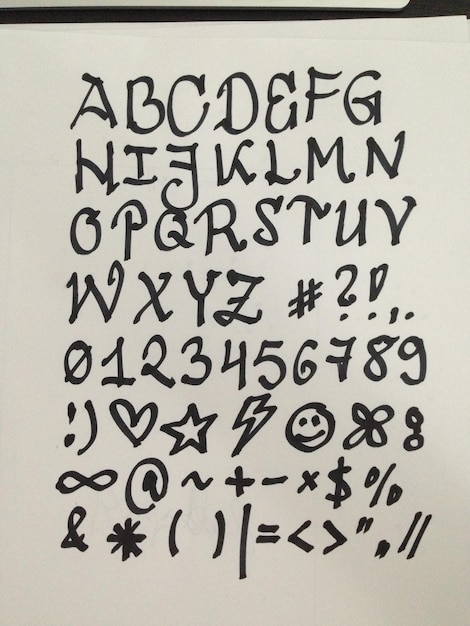 ABCDEFG
HIJKLMN
OPQRSTUV
WXYZ #?!.,
0123456789
:) ♡ ☆ ⚡ ☺ ⌘ 8
∞ @ ~ + - × $ %
& * ( ) | = < > " „ //